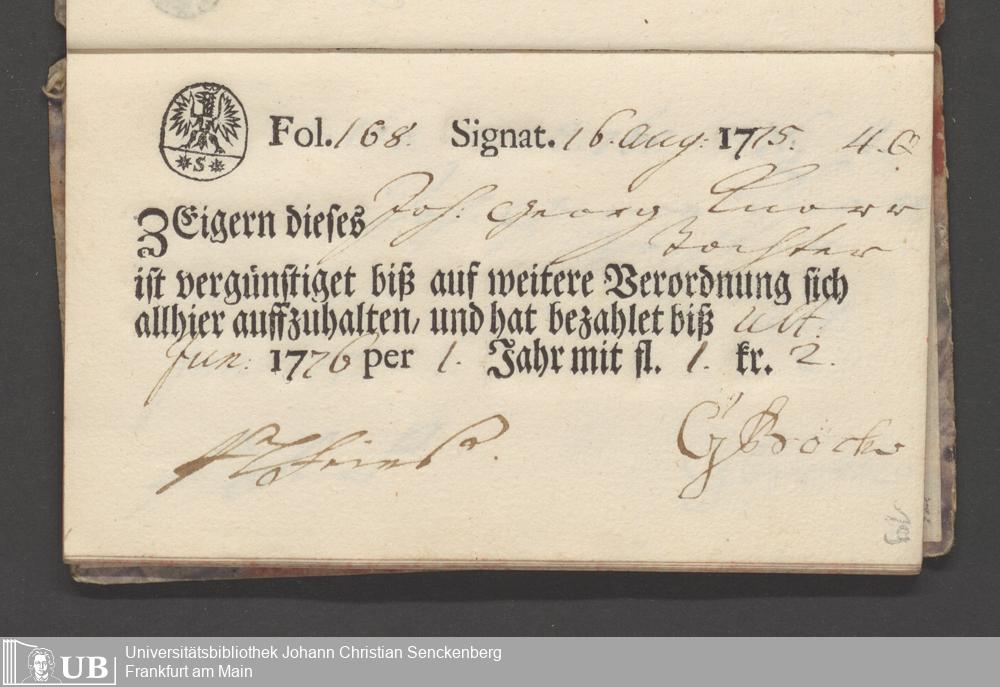 S
Fol. 168. Signat. 16. Aug: 1775. 4. Q
ZEigern dieses Joh. Georg Knorr
Tochter
ist vergünstiget biß auf weitere Verordnung sich
allhier auffzuhalten, und hat bezahlet biß ult.
Jun: 1776 per 1. Jahr mit fl. 1. kr. 2.
GBöcke
UB
Universitätsbibliothek Johann Christian Senckenberg
Frankfurt am Main